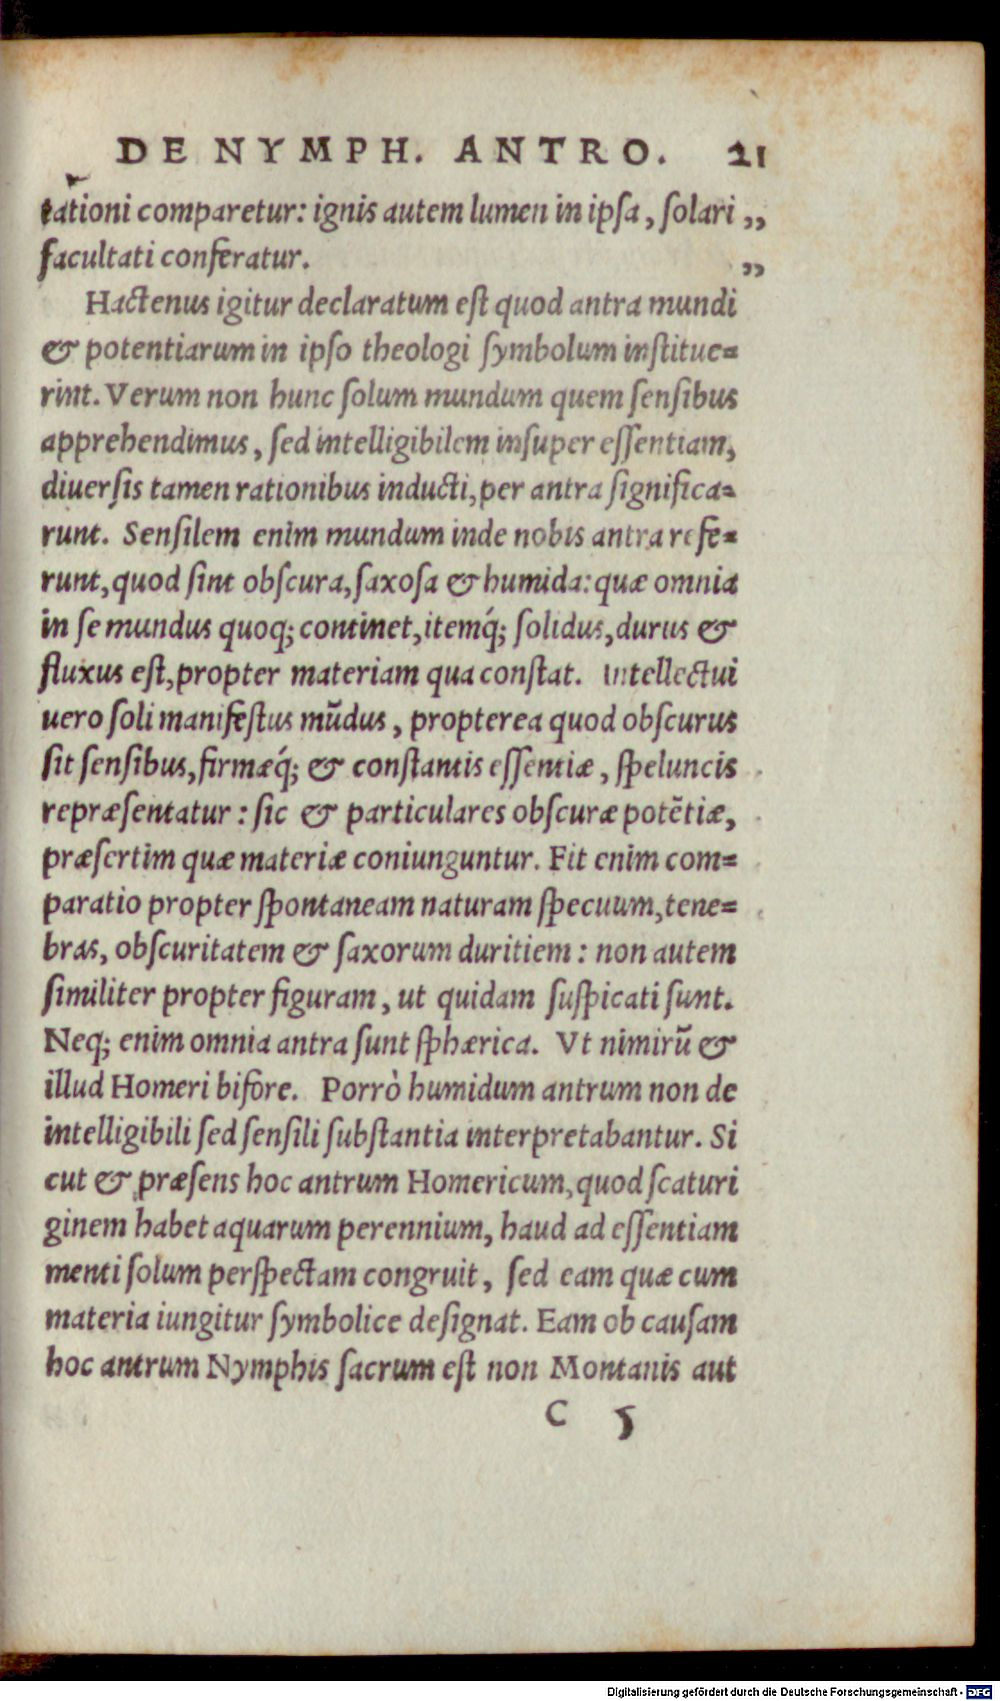 DE NYMPH. ANTRO. 21
rationi comparetur: ignis autem lumen in ipsa, solari ,,
facultati conferatur. ,,
Hactenus igitur declaratum est quod antra mundi
& potentiarum in ipso theologi symbolum institue=
rint. Verum non hunc solum mundum quem sensibus
apprehendimus, sed intelligibilem insuper essentiam,
diuersis tamen rationibus inducti, per antra significa=
runt. Sensilem enim mundum inde nobis antra refe=
runt, quod sint obscura, saxosa & humida: quæ omnia
in se mundus quoq; continet, itemq́; solidus, durus &
fluxus est, propter materiam qua constat. Intellectui
uero soli manifestus mũdus, propterea quod obscurus
sit sensibus, firmæq́; & constantis essentiæ, speluncis
repræsentatur: sic & particulares obscuræ potẽtiæ,
præsertim quæ materiæ coniunguntur. Fit enim com=
paratio propter spontaneam naturam specuum, tene=
bras, obscuritatem & saxorum duritiem: non autem
similiter propter figuram, ut quidam suspicati sunt.
Neq; enim omnia antra sunt sphærica. Vt nimirũ &
illud Homeri bifore. Porrò humidum antrum non de
intelligibili sed sensili substantia interpretabantur. Si
cut & præsens hoc antrum Homericum, quod scaturi
ginem habet aquarum perennium, haud ad essentiam
menti solum perspectam congruit, sed eam quæ cum
materia iungitur symbolice designat. Eam ob causam
hoc antrum Nymphis sacrum est non Montanis aut
C 5
Digitalisierung gefördert durch die Deutsche Forschungsgemeinschaft - DFG